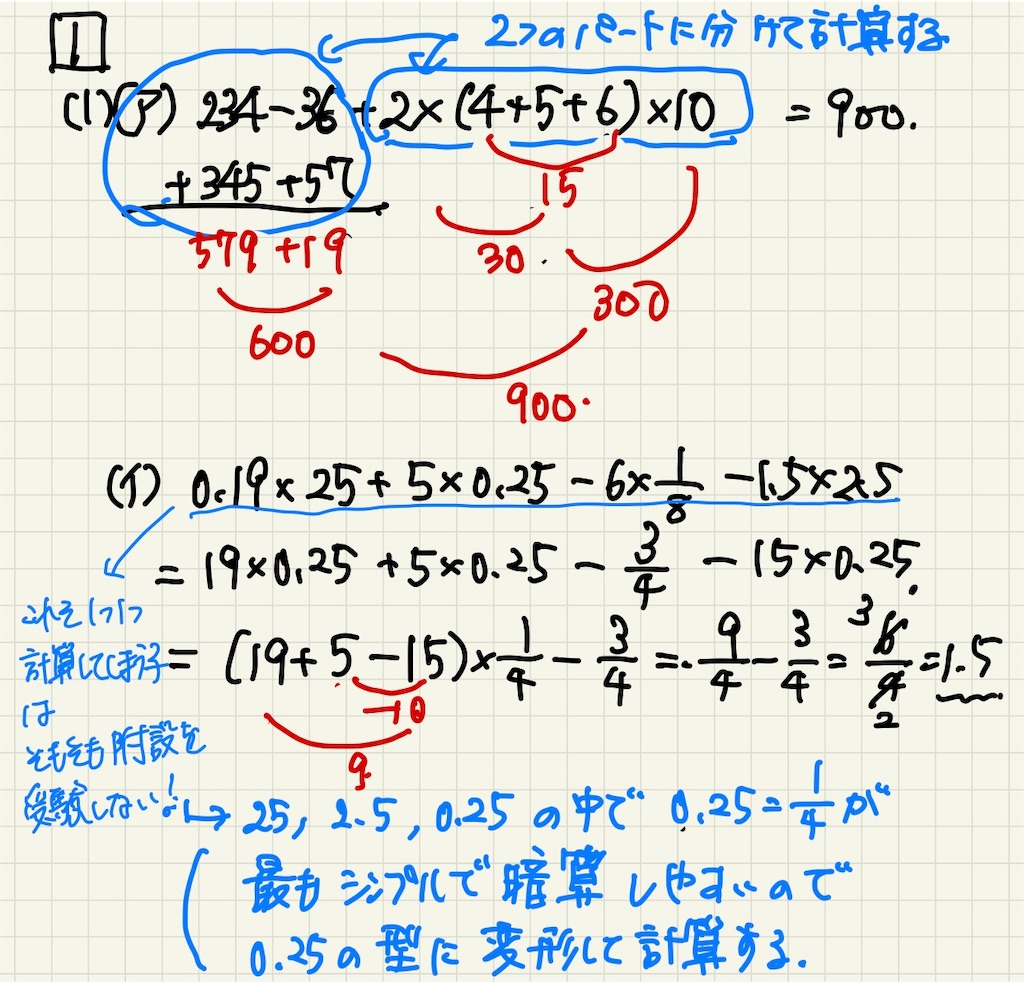 1
2つのパートに分けて計算する
(1)(ア) 234-36+2×(4+5+6)×10 = 900.
+345+57
15
579+19
30.
300
600
900.
(イ) 0.19×25+5×0.25-6×1/8-1.5×2.5
=19×0.25+5×0.25-3/4-15×0.25.
これを1つ1つ
計算してしまう子
は
そもそも附設を
受験しない!
=(19+5-15)×1/4-3/4=9/4-3/4=6/4=1.5
3
2
-10
9
→25, 2.5, 0.25の中で 0.25=1/4が
最もシンプルで暗算しやすいので
0.25の型に変形して計算する.